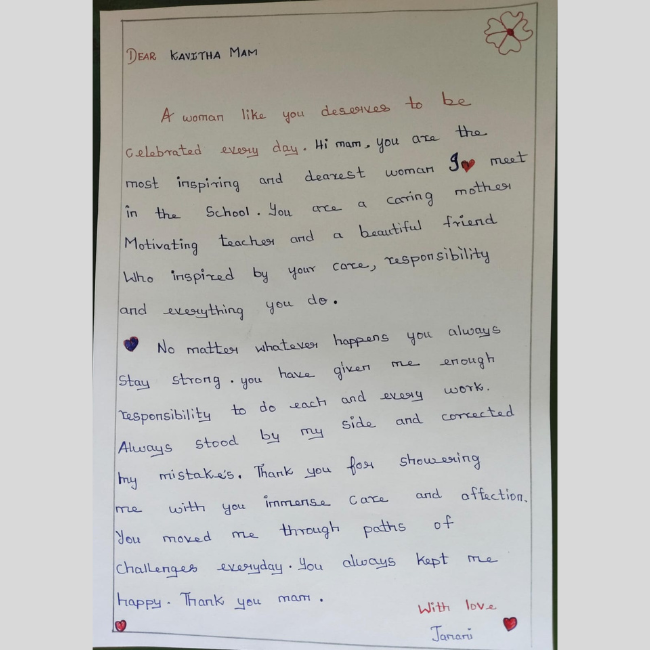 Dear Kavitha Mam
A woman like you deserves to be
celebrated every day. Hi mam, you are the
most inspiring and dearest woman I ❤ meet
in the School. You are a caring mother
Motivating teacher and a beautiful friend
Who inspired by your care, responsibility
and everything you do.
No matter whatever happens you always
stay strong. you have given me enough
responsibility to do each and every work.
Always stood by my side and corrected
my mistake's. Thank you for showering
me with you immense care and affection.
You moved me through paths of
challenges everyday. You always kept me
happy. Thank you mam.
With love
Janani